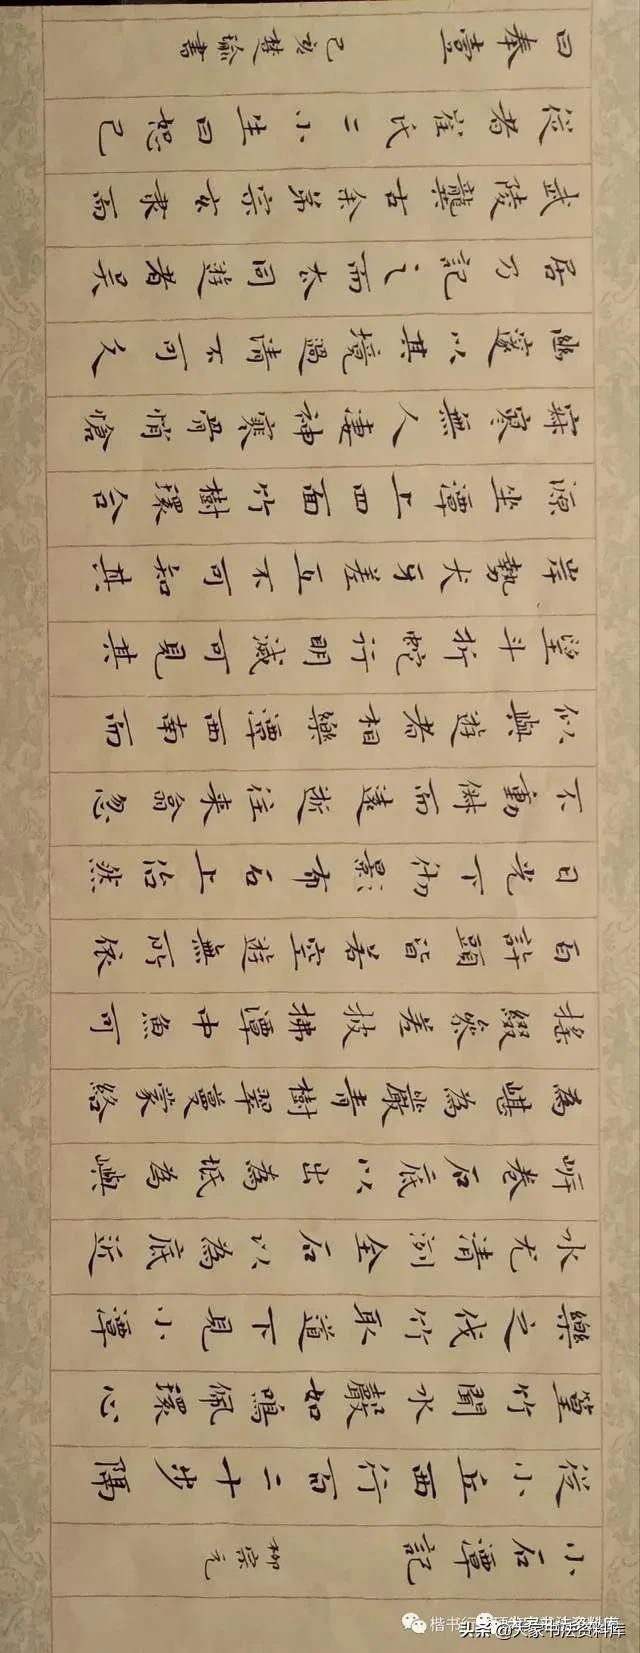 小石潭記 柳宗元
從小丘西行百二十步隔
篁竹聞水聲如鳴佩環心
樂之伐竹取道下見小潭
水尤清冽全石以為底近
岸卷石底以出為坻為嶼
為嵁為巖青樹翠蔓蒙絡
搖綴參差披拂潭中魚可
百許頭皆若空遊無所依
日光下彻影布石上佁然
不動俶而遠逝往來翕忽
似與遊者相樂潭西南而
望斗折蛇行明滅可見其
岸勢犬牙差互不可知其
源坐潭上四面竹樹環合
寂寥無人淒神寒骨悄愴
幽邃以其境過清不可久
居乃記之而去同遊者吳
武陵龔古余弟宗玄隸而
從者崔氏二小生曰恕己
曰奉壹 己亥楚瑜書
头条@大家书法资料库